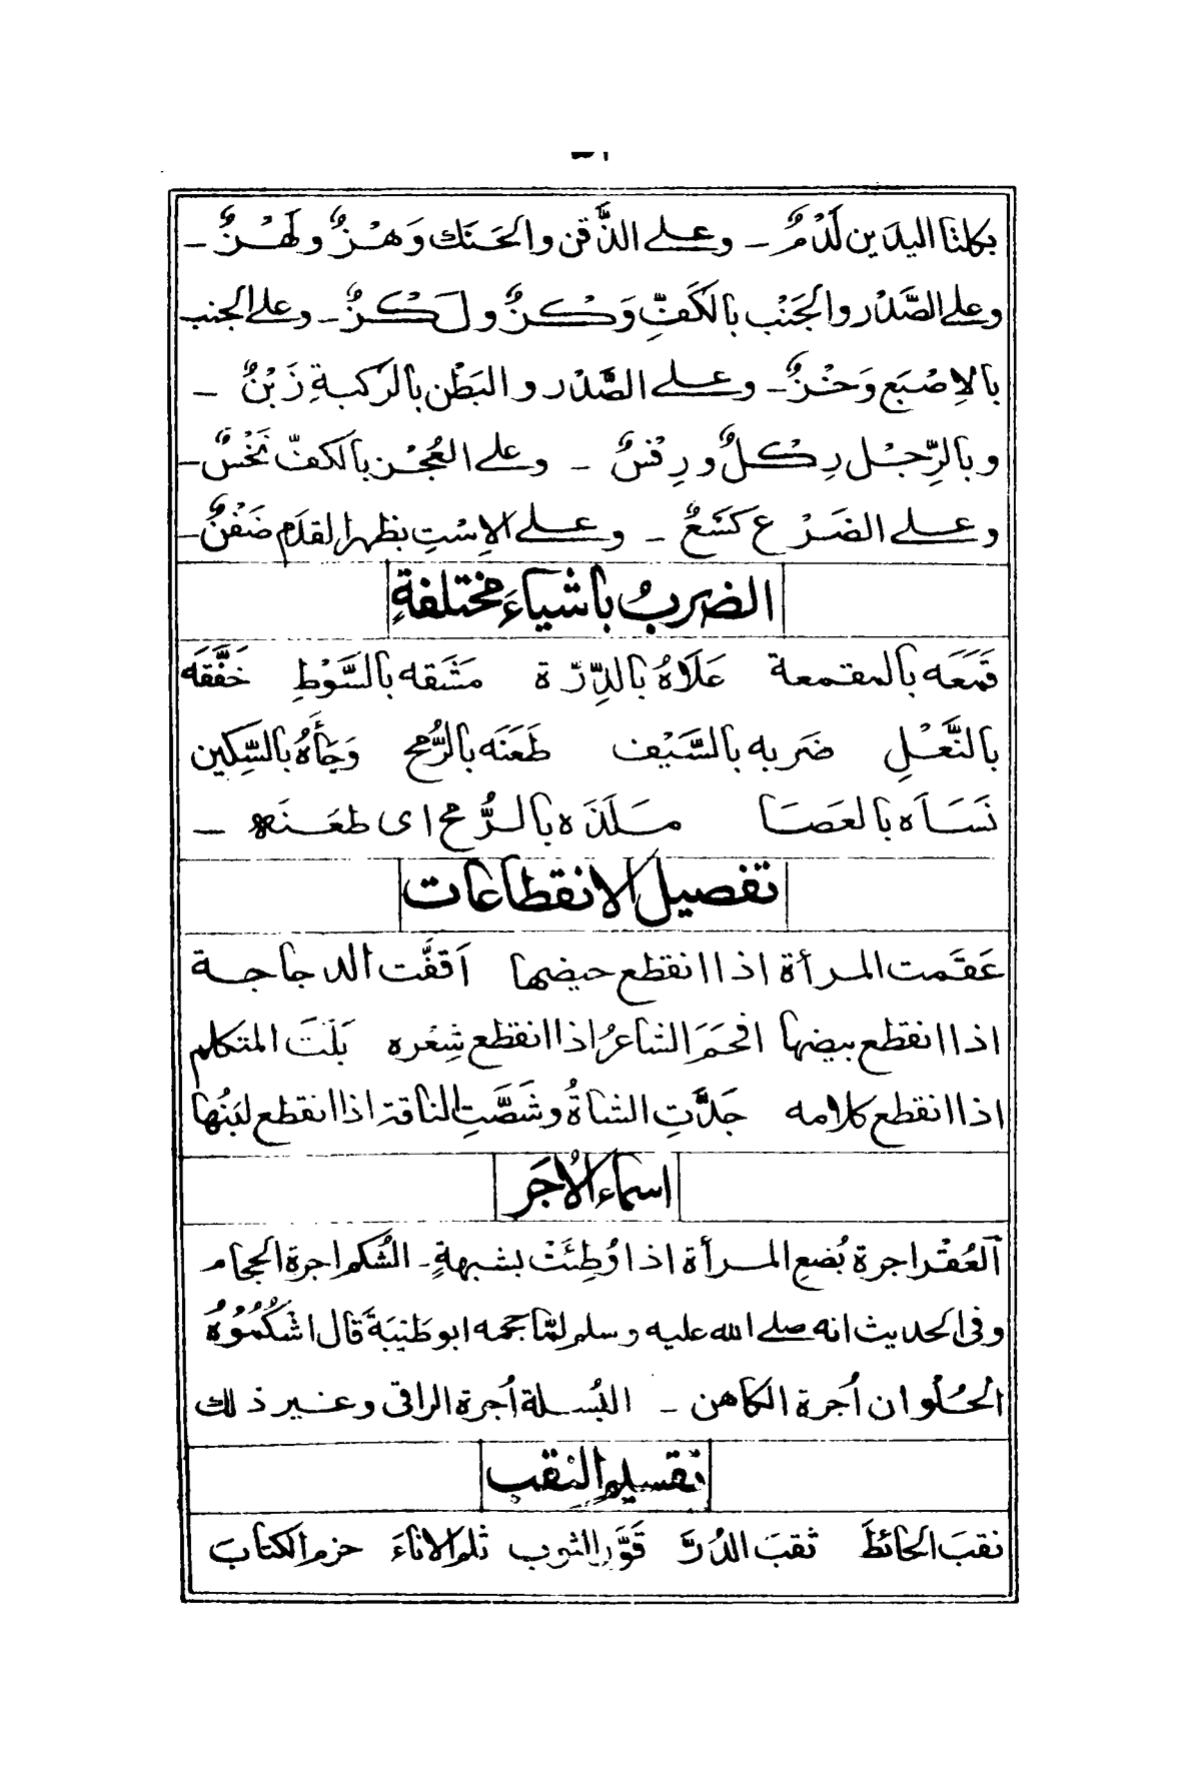 بكلتا اليدين لَدْمٌ ـ وعلى الذَّقن والحَنَك وَهْزٌ ولَهْزٌ ـ
وعلى الصَّدْر والجَنْب بالكَفِّ وَكْزٌ ولَكْزٌ ـ وعلى الجنب
بالاِصْبَع وَخْزٌ ـ وعلى الصَّدْر والبَطْن بالرُكبةِ زَبْنٌ ـ
وبالرِّجْل رِكْلٌ ورِفْسٌ ـ وعلى العُجْز بالكفّ نَخْسٌ ـ
وعلى الضَرْع كَسْعٌ ـ وعلى الاِسْتِ بظهر القدَم ضَفْنٌ ـ
الضربُ بأشياءَ مختلفةٍ
قَمَعَه بالمقمعة عَلَاهُ بالدِّرّة مَشَقه بالسَّوْطِ خَفَّقَه
بالنَّعْلِ ضَربه بالسَّيْف طَعَنَه بالرُّمح وَجَأَهُ بالسِّكين
نَسَأَه بالعَصَا مَلَذَه بالرُّمح اى طعَنَه ـ
تفصيل الانقطاعات
عَقَمت المرأة اذا انقطع حيضها اَقفَّت الدجاجة
اذا انقطع بيضها افحَمَ الشاعرُ اذا انقطع شِعْره بَلَتَ المتكلم
اذا انقطع كلامه جَدَّتِ الشاةُ وشَصَّتِ الناقة اذا انقطع لبَنُها
اسماء الاُجَر
اَلعُقْر اجرة بُضعِ المرأة اذا وُطِئَتْ بشبهةٍ ـ الشُكم اجرة الحجام
وفى الحديث انه صلى الله عليه وسلم لمّا حجمه ابو طَيْبَةَ قال اشْكُمُوْهُ
الحُلْوان اُجرة الكاهن ـ البُسلة اُجرة الراقى وغير ذلك
تقسيم النقب
نقبَ الحائطَ ثقبَ الدُرَّ قَوَّرَ الثوب ثلم الاناءَ خزم الكتابَ